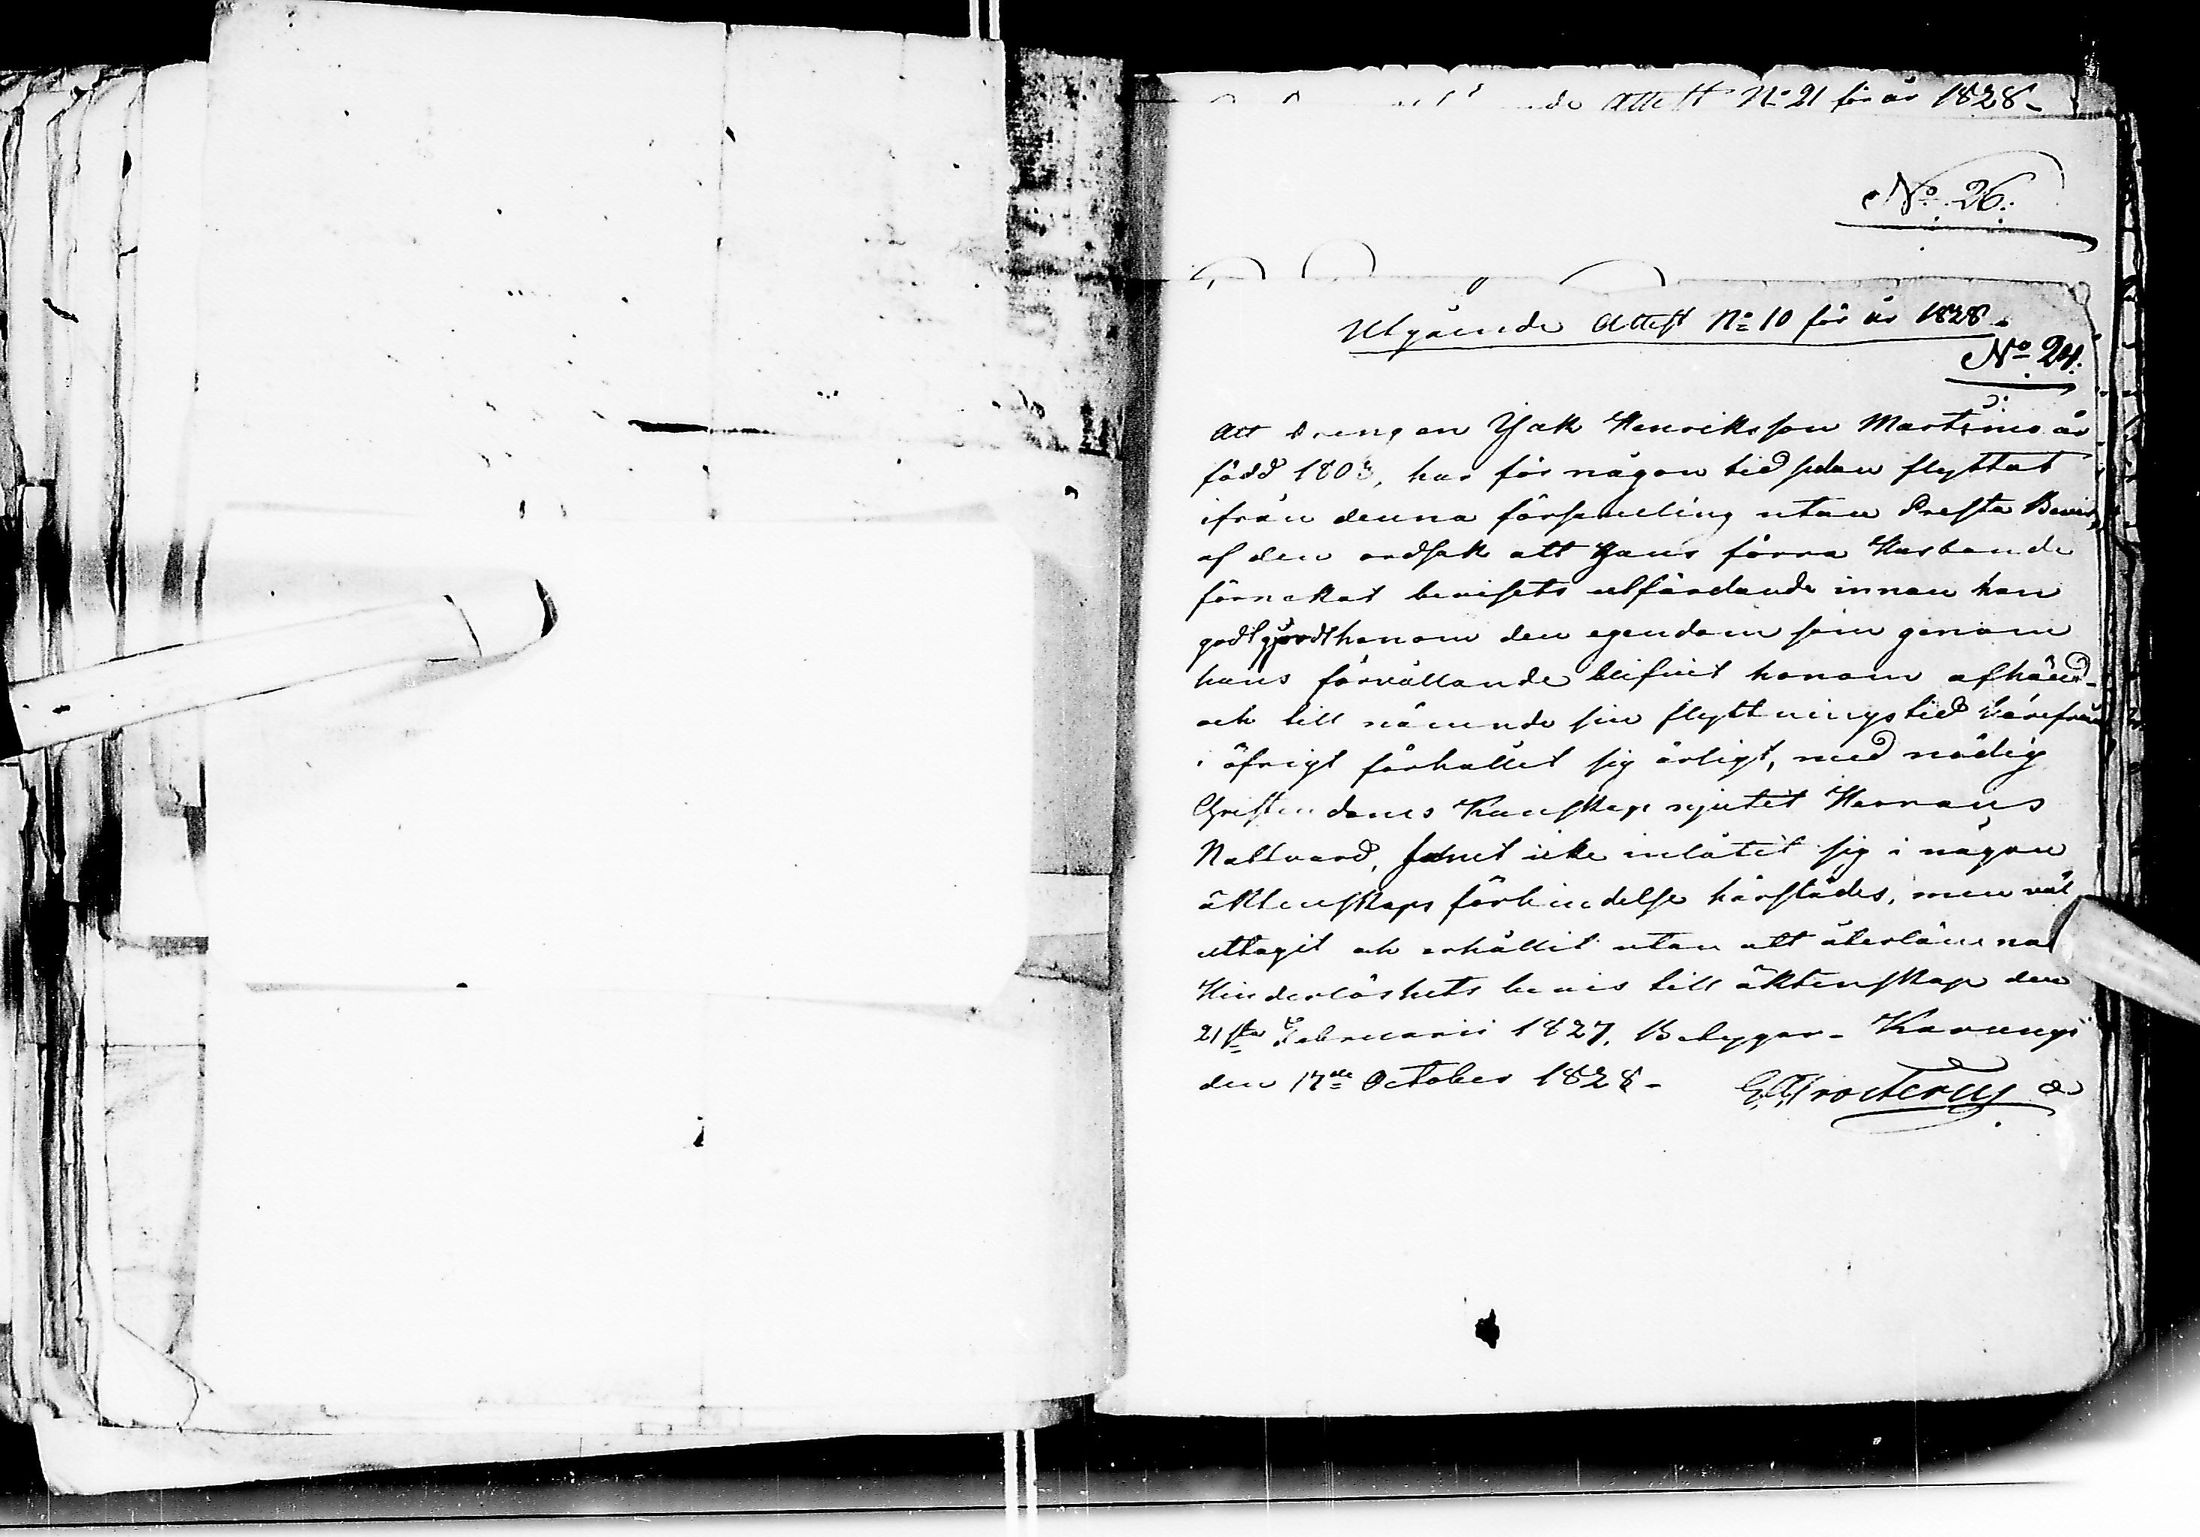 Attest No 21 för år 1828 -
No. 26.
Utgående Attest No 10 för år 1828.
No. 24.
Att Drengen Isak Henriksson Martimo är
född 1803, har för någon tid sedan flyttat
ifrån denna församling utan Presta Bevis,
af den ordsak att Hans förra Husbonde
förnekat bevisets utfärdande innan han
godtgjordt honom den egendom som genom
hans förvållande blifvit honom afhänd -
och till nämnde sin flyttningstid härifrån
i öfrigt förhållit sig ärligt, med nödig
Christendoms Kunskap njutit Herrans
Nattvard, icke inlåtit sig i någon
äktenskaps förbindelse härstädes, men väl
uttagit och erhållit utan att återlämna
Hinderlöshets bevis till äktenskap den
21sta Februarii 1827. Betygar - Karungi
den 17de October 1828 -